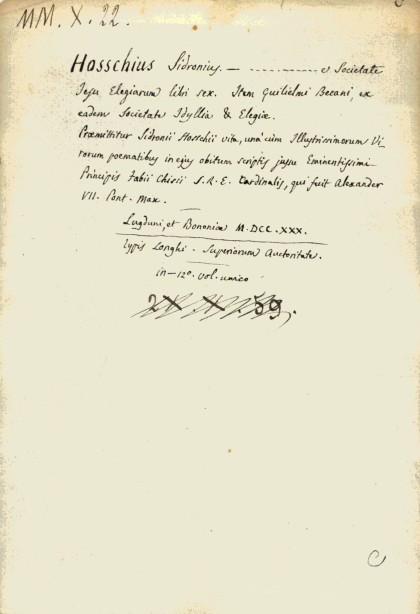 MM. X. 22.
Hosschius Sidronius. — ———— e Societate
Jesu Elegiarum libri sex. Item Guilielmi Becani, ex
eadem Societate Idyllia & Elegiæ.
Præmittitur Sidronii Hosschii vita, unà cum Illustrissimorum Vi-
rorum poematibus in ejus obitum scriptis jussu Eminentissimi
Principis Fabii Chisii S. R. E. Cardinalis, qui fuit Alexander
VII. Pont. Max.
Lugduni, et Bononiæ M. DCC. XXX.
typis Longhi. Superiorum Auctoritate.
in-12º. vol. unico
2X X 59.
C